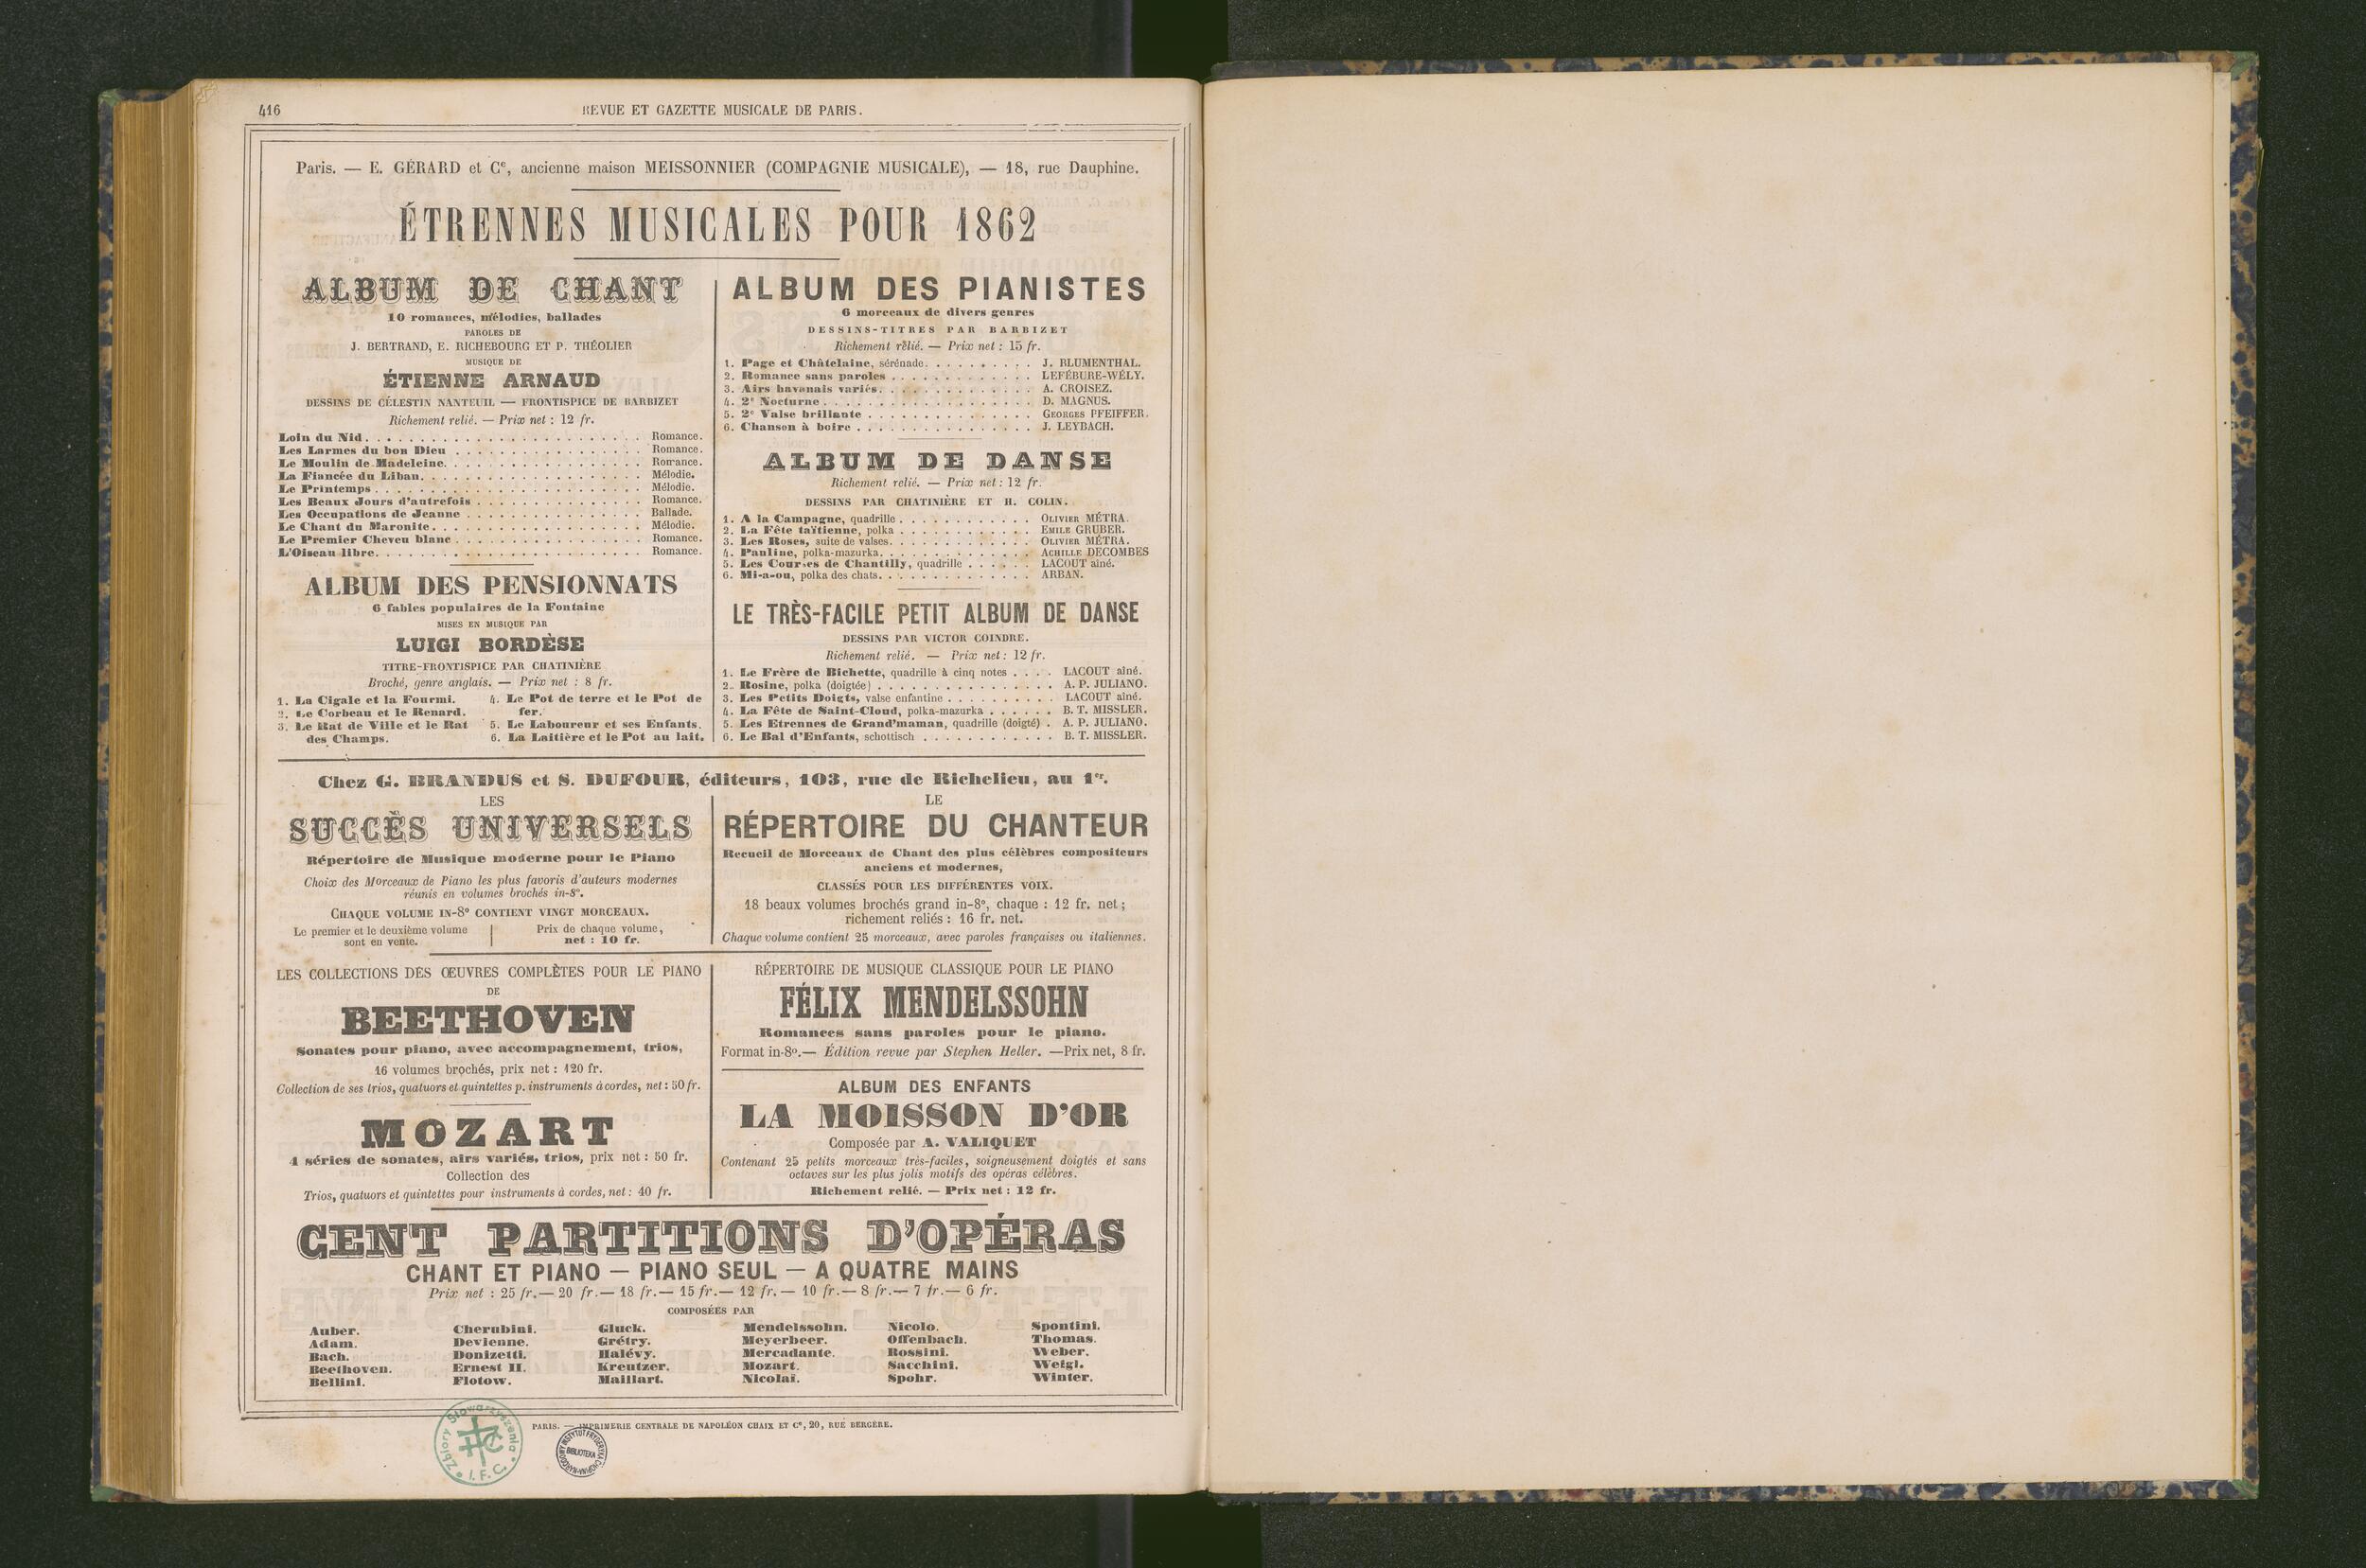 416
REVUE ET GAZETTE MUSICALE DE PARIS.
Paris. — E. GÉRARD et Cᵉ, ancienne maison MEISSONNIER (COMPAGNIE MUSICALE), — 18, rue Dauphine.
ÉTRENNES MUSICALES POUR 1862
ALBUM DE CHANT
10 romances, mélodies, ballades
PAROLES DE
J. BERTRAND, E. RICHEBOURG ET P. THÉOLIER
MUSIQUE DE
ÉTIENNE ARNAUD
DESSINS DE CÉLESTIN NANTEUIL — FRONTISPICE DE BARBIZET
Richement relié. — Prix net : 12 fr.
Loin du Nid. . . . . . . . . . . . . . . . . . . . Romance.
Les Larmes du bon Dieu . . . . . . . . . . . . . . . . Romance.
Le Moulin de Madeleine. . . . . . . . . . . . . . . . . Romance.
La Fiancée du Liban. . . . . . . . . . . . . . . . . . Mélodie.
Le Printemps . . . . . . . . . . . . . . . . . . . . Mélodie.
Les Beaux Jours d'autrefois . . . . . . . . . . . . . . Romance.
Les Occupations de Jeanne . . . . . . . . . . . . . . . Ballade.
Le Chant du Maronite. . . . . . . . . . . . . . . . . . Mélodie.
Le Premier Cheveu blanc . . . . . . . . . . . . . . . . Romance.
L'Oiseau libre. . . . . . . . . . . . . . . . . . . . Romance.
ALBUM DES PENSIONNATS
6 fables populaires de la Fontaine
MISES EN MUSIQUE PAR
LUIGI BORDÈSE
TITRE-FRONTISPICE PAR CHATINIÈRE
Broché, genre anglais. — Prix net : 8 fr.
1. La Cigale et la Fourmi.
2. Le Corbeau et le Renard.
3. Le Rat de Ville et le Rat
des Champs.
4. Le Pot de terre et le Pot de
fer.
5. Le Laboureur et ses Enfants.
6. La Laitière et le Pot au lait.
ALBUM DES PIANISTES
6 morceaux de divers genres
DESSINS-TITRES PAR BARBIZET
Richement relié. — Prix net : 15 fr.
1. Page et Châtelaine, sérénade. . . . . . . . . J. BLUMENTHAL.
2. Romance sans paroles . . . . . . . . . . . . LEFÉBURE-WÉLY.
3. Airs havanais variés. . . . . . . . . . . . . A. CROISEZ.
4. 2ᵉ Nocturne . . . . . . . . . . . . . . . . D. MAGNUS.
5. 2ᵉ Valse brillante . . . . . . . . . . . . . GEORGES PFEIFFER.
6. Chanson à boire . . . . . . . . . . . . . . J. LEYBACH.
ALBUM DE DANSE
Richement relié. — Prix net : 12 fr.
DESSINS PAR CHATINIÈRE ET H. COLIN.
1. A la Campagne, quadrille . . . . . . . . . . . OLIVIER MÉTRA.
2. La Fête taïtienne, polka . . . . . . . . . . . EMILE GRUBER.
3. Les Roses, suite de valses. . . . . . . . . . . OLIVIER MÉTRA.
4. Pauline, polka-mazurka. . . . . . . . . . . . ACHILLE DECOMBES
5. Les Courses de Chantilly, quadrille . . . . . . LACOUT aîné.
6. Mi-a-ou, polka des chats. . . . . . . . . . . . ARBAN.
LE TRÈS-FACILE PETIT ALBUM DE DANSE
DESSINS PAR VICTOR COINDRE.
Richement relié. — Prix net : 12 fr.
1. Le Frère de Bichette, quadrille à cinq notes . . . . LACOUT aîné.
2. Rosine, polka (doigtée) . . . . . . . . . . . . . A. P. JULIANO.
3. Les Petits Doigts, valse enfantine . . . . . . . . LACOUT aîné.
4. La Fête de Saint-Cloud, polka-mazurka . . . . . . B. T. MISSLER.
5. Les Etrennes de Grand'maman, quadrille (doigté) . A. P. JULIANO.
6. Le Bal d'Enfants, schottisch . . . . . . . . . . . B. T. MISSLER.
Chez G. BRANDUS et S. DUFOUR, éditeurs, 103, rue de Richelieu, au 1ᵉʳ.
LES
SUCCÈS UNIVERSELS
Répertoire de Musique moderne pour le Piano
Choix des Morceaux de Piano les plus favoris d'auteurs modernes
réunis en volumes brochés in-8°.
CHAQUE VOLUME IN-8° CONTIENT VINGT MORCEAUX.
Le premier et le deuxième volume
sont en vente.
Prix de chaque volume,
net : 10 fr.
LE
RÉPERTOIRE DU CHANTEUR
Recueil de Morceaux de Chant des plus célèbres compositeurs
anciens et modernes,
CLASSÉS POUR LES DIFFÉRENTES VOIX.
18 beaux volumes brochés grand in-8°, chaque : 12 fr. net ;
richement reliés : 16 fr. net.
Chaque volume contient 25 morceaux, avec paroles françaises ou italiennes.
LES COLLECTIONS DES ŒUVRES COMPLÈTES POUR LE PIANO
DE
BEETHOVEN
Sonates pour piano, avec accompagnement, trios,
16 volumes brochés, prix net : 120 fr.
Collection de ses trios, quatuors et quintettes p. instruments à cordes, net : 50 fr.
MOZART
4 séries de sonates, airs variés, trios, prix net : 50 fr.
Collection des
Trios, quatuors et quintettes pour instruments à cordes, net : 40 fr.
RÉPERTOIRE DE MUSIQUE CLASSIQUE POUR LE PIANO
FÉLIX MENDELSSOHN
Romances sans paroles pour le piano.
Format in-8°. — Édition revue par Stephen Heller. — Prix net, 8 fr.
ALBUM DES ENFANTS
LA MOISSON D'OR
Composée par A. VALIQUET
Contenant 25 petits morceaux très-faciles, soigneusement doigtés et sans
octaves sur les plus jolis motifs des opéras célèbres.
Richement relié. — Prix net : 12 fr.
CENT PARTITIONS D'OPÉRAS
CHANT ET PIANO — PIANO SEUL — A QUATRE MAINS
Prix net : 25 fr. — 20 fr. — 18 fr. — 15 fr. — 12 fr. — 10 fr. — 8 fr. — 7 fr. — 6 fr.
COMPOSÉES PAR
Auber. Cherubini. Gluck. Mendelssohn. Nicolo. Spontini.
Adam. Devienne. Grétry. Meyerbeer. Offenbach. Thomas.
Bach. Donizetti. Halévy. Mercadante. Rossini. Weber.
Beethoven. Ernest II. Kreutzer. Mozart. Sacchini. Weigl.
Bellini. Flotow. Maillart. Nicolaï. Spohr. Winter.
PARIS. — IMPRIMERIE CENTRALE DE NAPOLÉON CHAIX ET Cᵉ, 20, RUE BERGÈRE.
Zbiory Stowarzyszenia
I. F. C.
BIBLIOTEKA